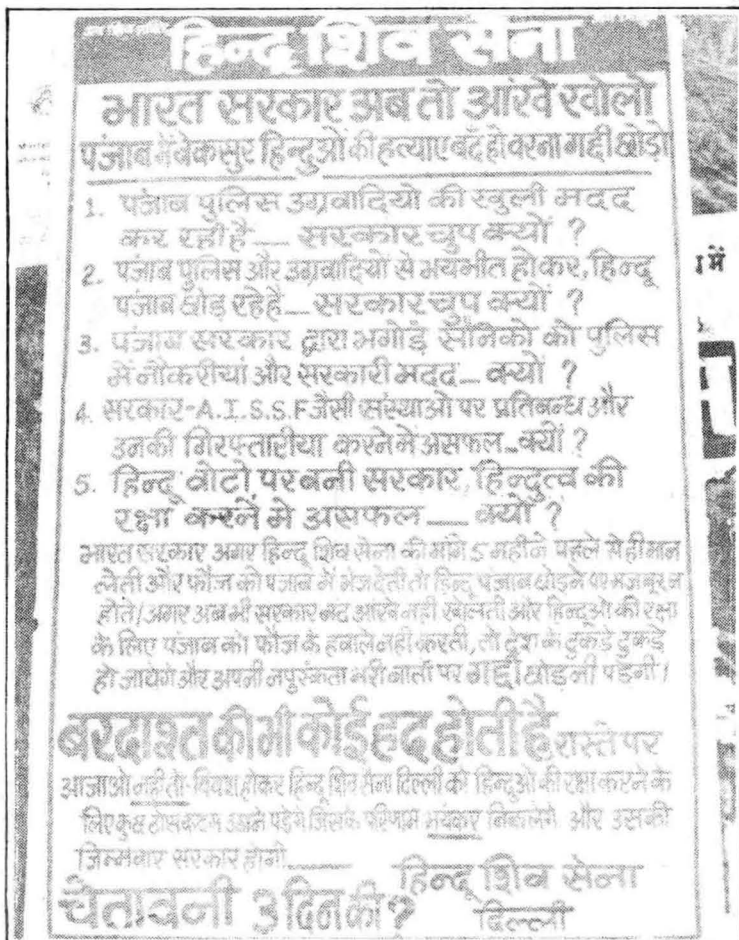 हिन्दू शिव सेना
भारत सरकार अब तो आंखे खोलो
पंजाब में बेकसुर हिन्दुओं की हत्याए बंद हो वरना गद्दी छोड़ो
1. पंजाब पुलिस उग्रवादियो की खुली मदद
कर रही है __ सरकार चुप क्यों ?
2. पंजाब पुलिस और उग्रवादियों से भयभीत होकर, हिन्दू
पंजाब छोड़ रहे है _ सरकार चुप क्यों ?
3. पंजाब सरकार द्वारा भगोड़े सैनिको को पुलिस
में नौकरीयां और सरकारी मदद _ क्यो ?
4. सरकार-A.I.S.S.F जैसी संस्थाओ पर प्रतिबन्ध और
उनकी गिरफ्तारीया करने मे असफल _ क्यों ?
5. हिन्दू वोटो पर बनी सरकार, हिन्दुत्व की
रक्षा करनें मे असफल __ क्यों ?
भारत सरकार अगर हिन्दू शिव सेना की मांगे 5 महीने पहले से ही मान
लेती और फौज को पंजाब में भेज देती तो हिन्दू पंजाब छोड़ने पर मजबूर न
होते। अगर अब भी सरकार बंद आंखे नही खोलती और हिन्दुओ की रक्षा
के लिए पंजाब को फौज के हवाले नही करती, तो देश के टुकड़े टुकड़े
हो जायेगे और अपनी नपुंसकता भरी बातों पर गद्दी छोड़नी पड़ेगी।
बरदाश्त की भी कोई हद होती है रास्ते पर
आजाओ नही तो विवश होकर हिन्दू शिव सेना दिल्ली को हिन्दुओ की रक्षा करने के
लिए कुछ ठोस कदम उठाने पड़ेगे जिसके परिणाम भयंकर निकलेगे और उसकी
जिम्मेवार सरकार होगी ____
हिन्दू शिव सेना
चेतावनी 3 दिन की ?
दिल्ली
में